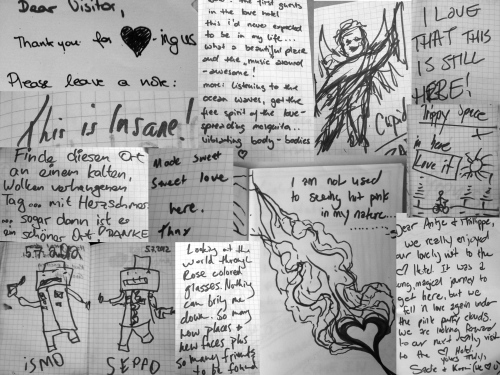 Dear Visitor,
Thank you for -ing us
Please leave a note:
the first guests
in the love hotel
this i'd never expected
to be in my life...
what a beautiful place
and the music around
- awesome!
more: listening to the
ocean waves, get the
free spirit of the love-
spreading mosquito..
vibrating body - bodies
Cupid
I LOVE
THAT THIS
IS STILL
HERE!
This is Insane!
Finde diesen Ort
an einem kalten,
Wolken verhangenen
Tag... mit Herzschmerz
... sogar dann ist es
ein schöner Ort DANKE
Made sweet
Sweet love
here.
Thx
I am not used
to seeing hot pink
in my nature...
Hippy Space
in here
Love it!
5.7.2012
iSMO
5.7.2012
SEPPO
Looking at the
world through
Rose colored
glasses. Nothing
can bring me
down. So many
new places +
new faces plus
so many friends
to be found
Dear Antje & Philippe,
we really enjoyed
our lovely visit to the
Hotel. It was a
long, magical journey to
get here, but we
fell in love again under
the pink puffy clouds.
We are looking forward
to our next lovely visit
to the Hotel.
yours truly,